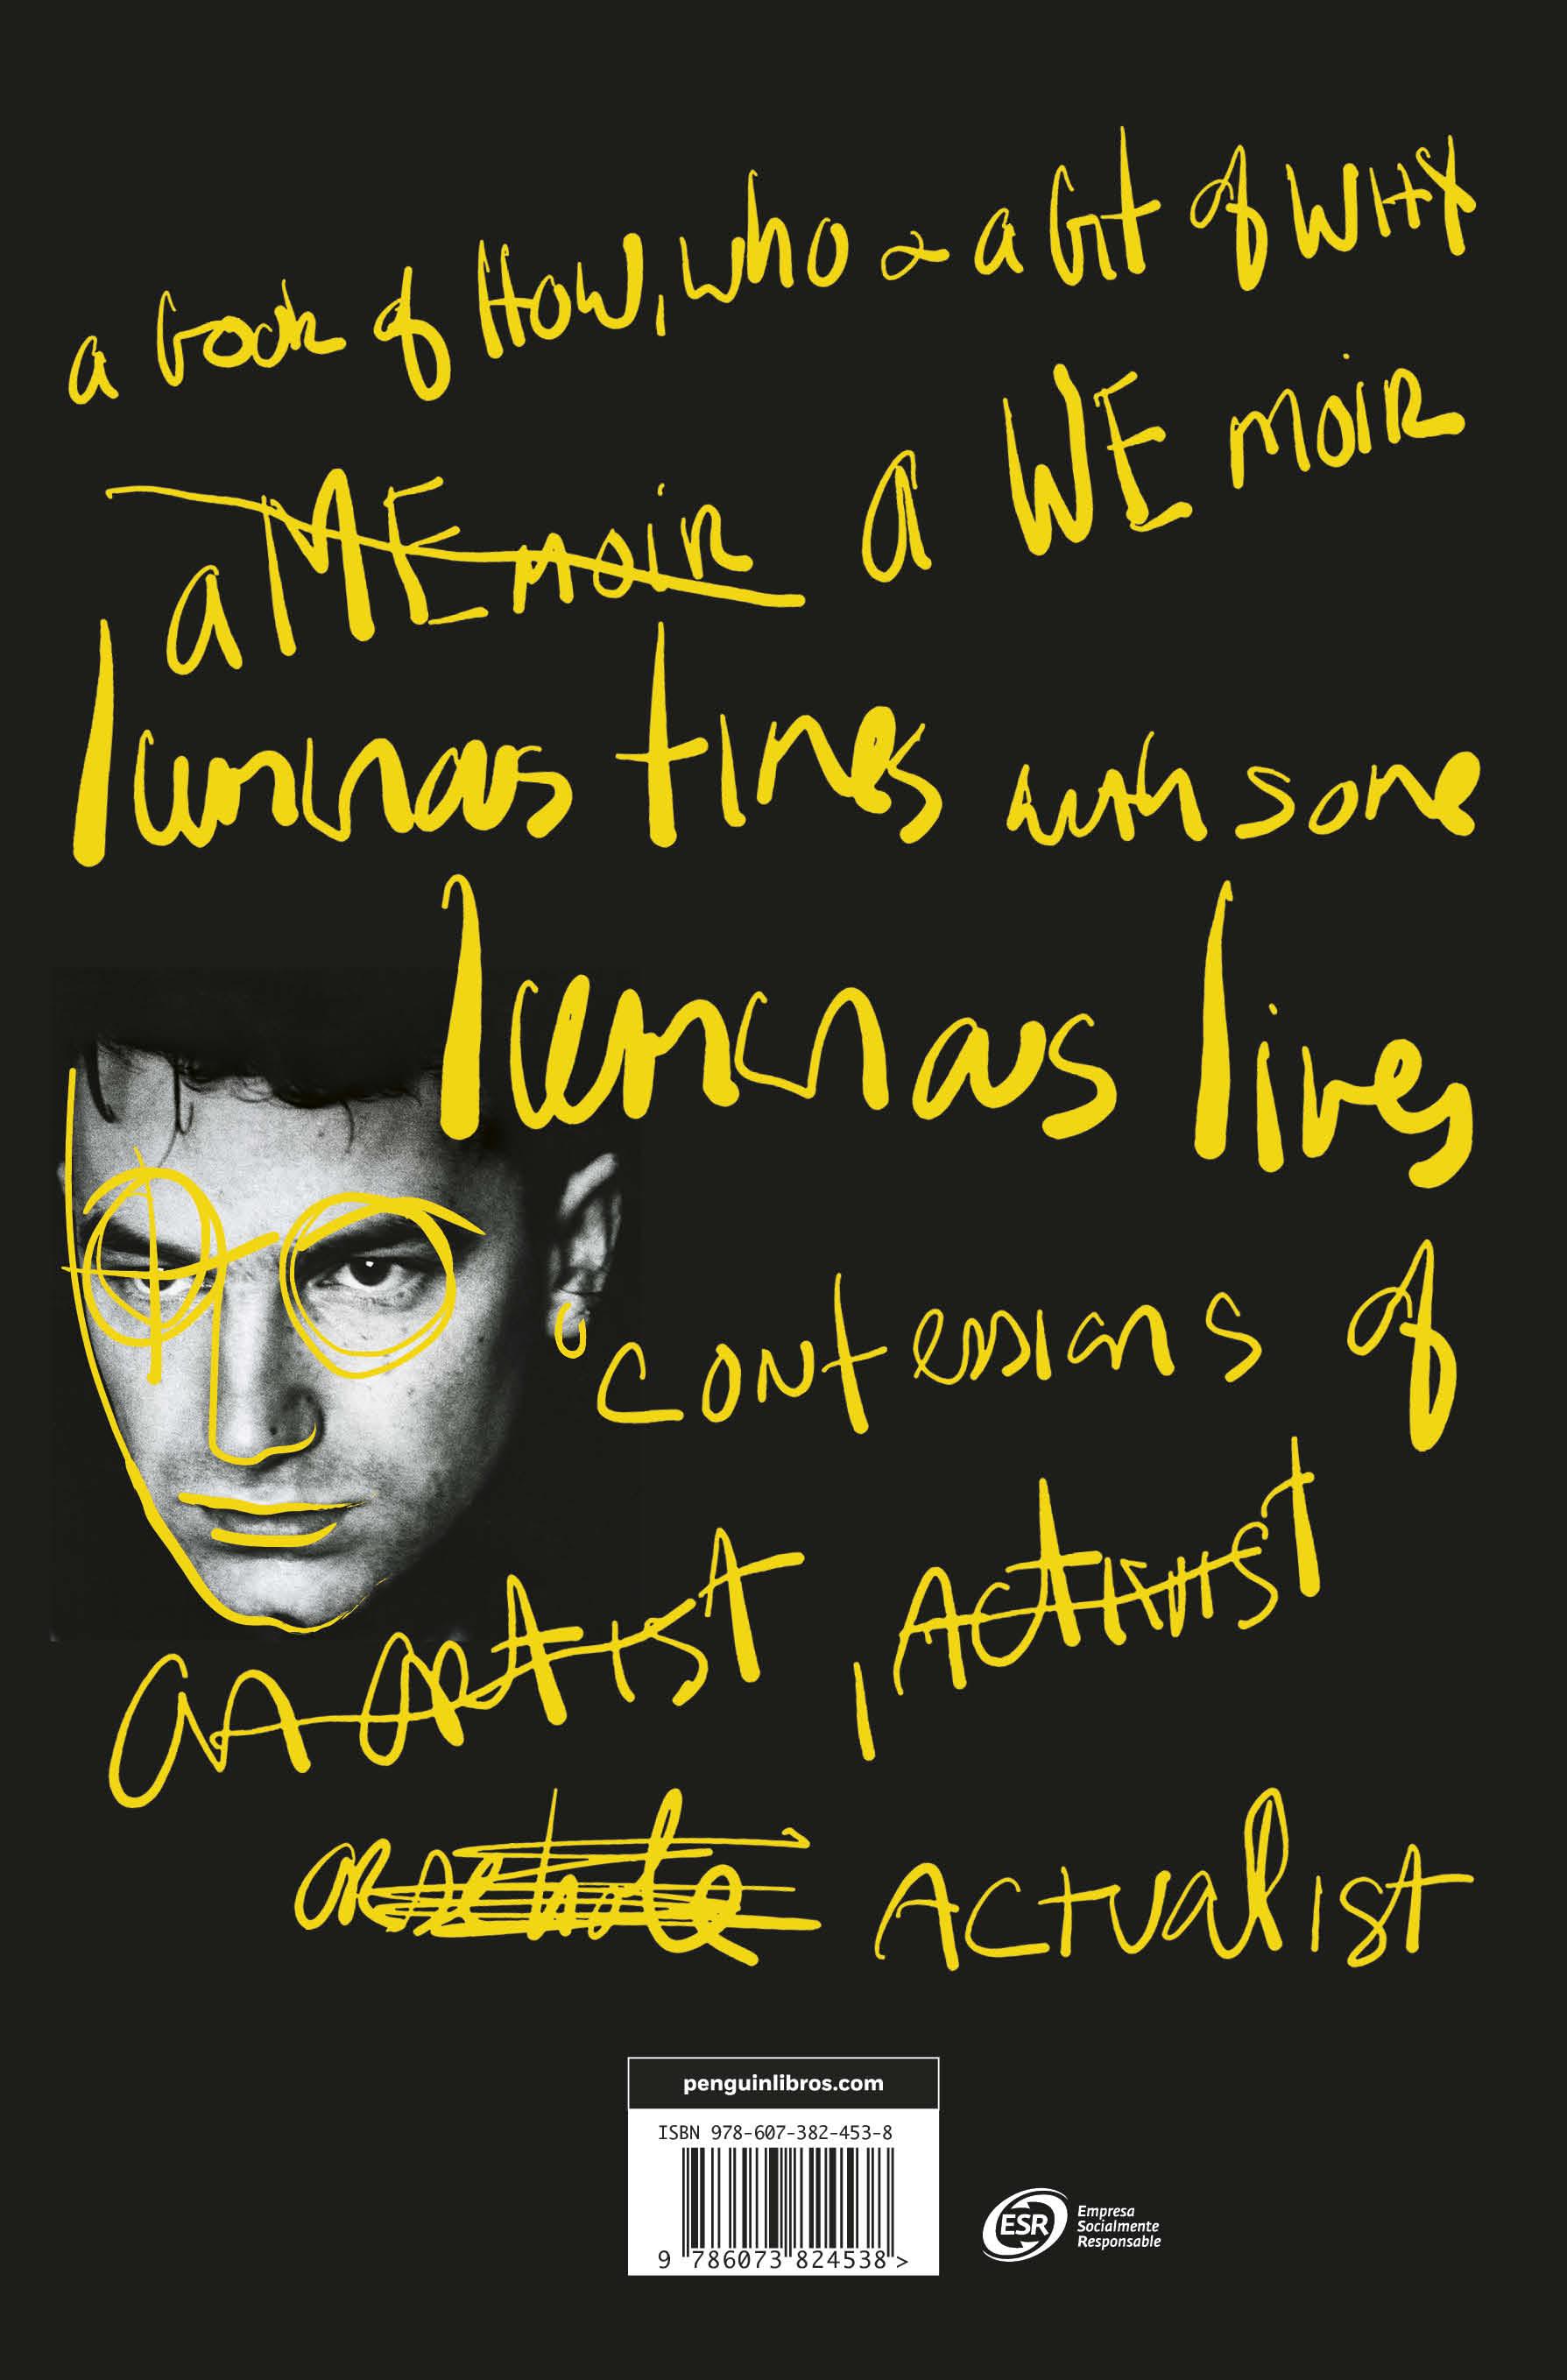 a book of HOW, who & a bit of WHY
a MEmoir a WE moir
luminous times with some
luminous lives
confessions of
an ARTIST, ACTIVIST
OR ACTUALIST
penguinlibros.com
ISBN 978-607-382-453-8
9 786073 824538 >
ESR
Empresa
Socialmente
Responsable